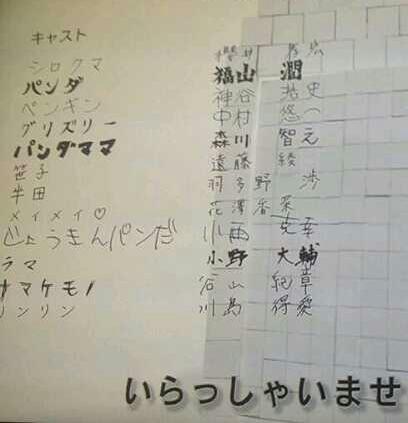 キャスト
シロクマ 櫻井 孝宏
パンダ 福山 潤
ペンギン 神谷 浩史
グリズリー 中村 悠一
パンダママ 森川 智之
笹子 遠藤 綾
半田 羽多野 渉
メイメイ♡ 花澤 香菜
じょうきんパンだ 小西 克幸
ラマ 小野 大輔
ナマケモノ 谷山 紀章
リンリン 川島 得愛
いらっしゃいませ